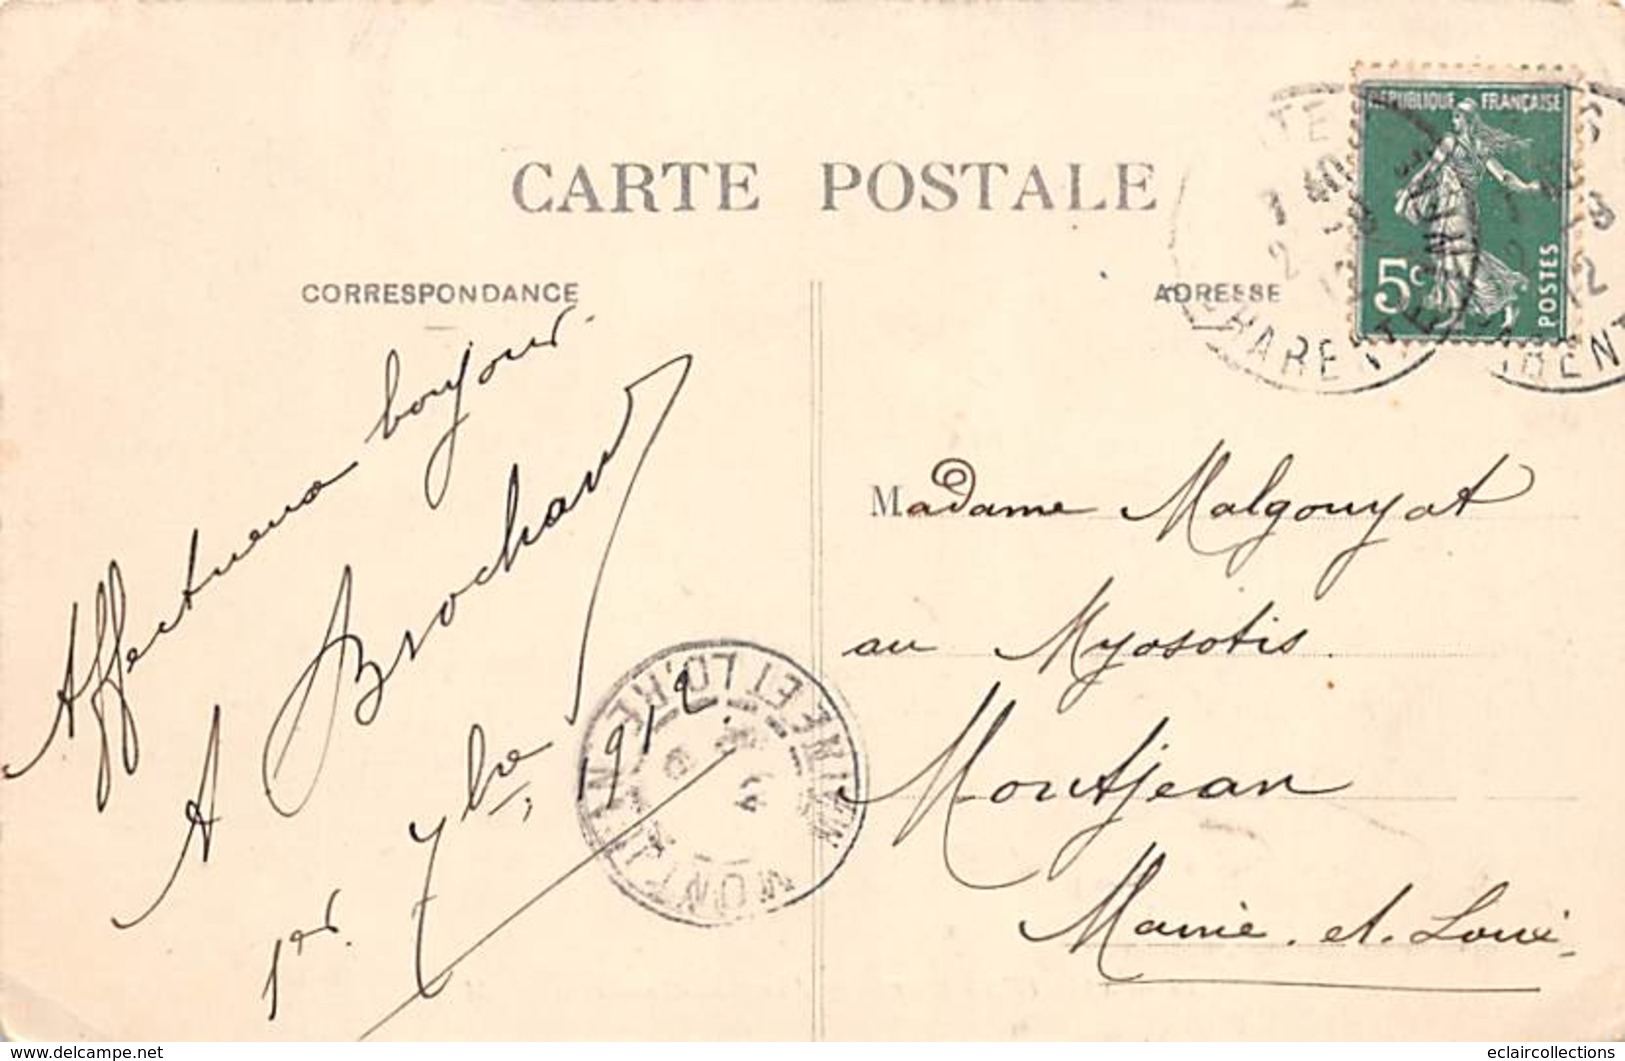 CARTE POSTALE
CORRESPONDANCE
Affectueux bonjour.
A Brochard
1er 7bre 912.
ADRESSE
Madame Malgouyat
au Myosotis.
Montjean
Maine. et. Loire
REPUBLIQUE FRANÇAISE
5c
POSTES
CHARENTE
MONTJEAN
MAINE ET LOIRE
www.delcampe.net
eclaircollections